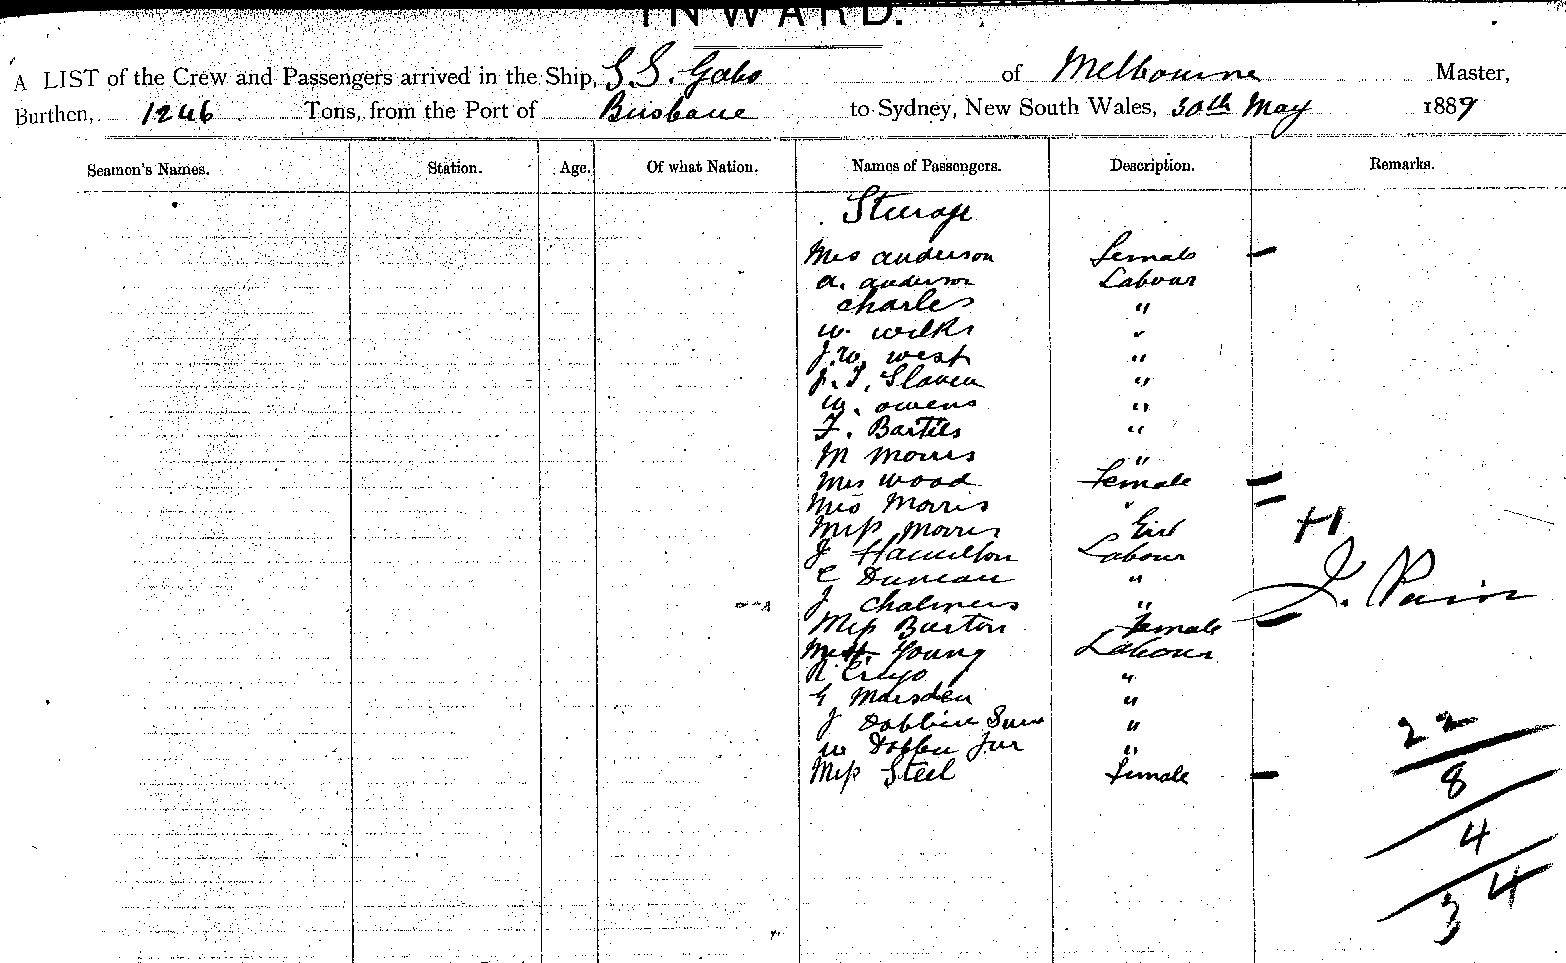 INWARD.
A LIST of the Crew and Passengers arrived in the Ship, S.S. Gabo of Melbourne Master,
Burthen, 1246 Tons, from the Port of Brisbane to Sydney, New South Wales, 30th May 1889
Seamen's Names. Station. Age. Of what Nation. Names of Passengers. Description. Remarks.
Steerage
Mrs Anderson Female
A. Anderson Labour
Charles "
W. Wilks "
J.W. West "
J.T. Slaven "
W. Owens "
F. Bartels "
M Morris "
Mrs Wood Female
Mrs Morris "
Miss Morris Girl
+1
J Hamilton Labour
C Duncan "
J. Pain
J Chalmers "
Miss Burton Female
Young Labour
R "
G Marsden "
J Dobbin Senr "
W Dobbin Jur "
Miss Steel Female
22
8
4
3 4